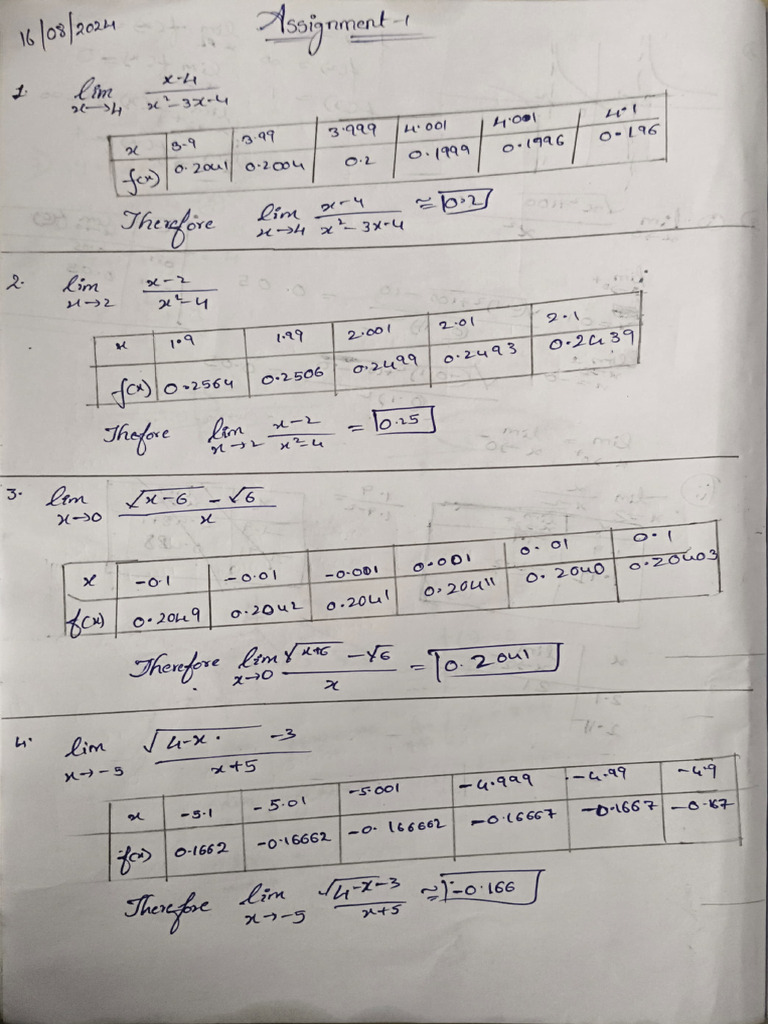 16/08/2024 Assignment-1
1. lim x→4 x-4 / x²-3x-4
x 3.9 3.99 3.999 4.001 4.001 4.1
f(x) 0.2041 0.2004 0.2 0.1999 0.1996 0.196
Therefore lim x→4 x-4 / x²-3x-4 ≅ 0.2
2. lim x→2 x-2 / x²-4
x 1.9 1.99 2.001 2.01 2.1
f(x) 0.2564 0.2506 0.2499 0.2493 0.2439
Thefore lim x→2 x-2 / x²-4 = 0.25
3. lim x→0 √x-6 - √6 / x
x -0.1 -0.01 -0.001 0.001 0.01 0.1
f(x) 0.2049 0.2042 0.2041 0.20411 0.2040 0.20403
Therefore lim x→0 √x+6 - √6 / x = 0.2041
4. lim x→-5 √4-x - 3 / x+5
x -5.1 -5.01 -5.001 -4.999 -4.99 -4.9
f(x) 0.1662 -0.16662 -0.166662 -0.16667 -0.1667 -0.167
Therefore lim x→-5 √4-x-3 / x+5 ≅ -0.166